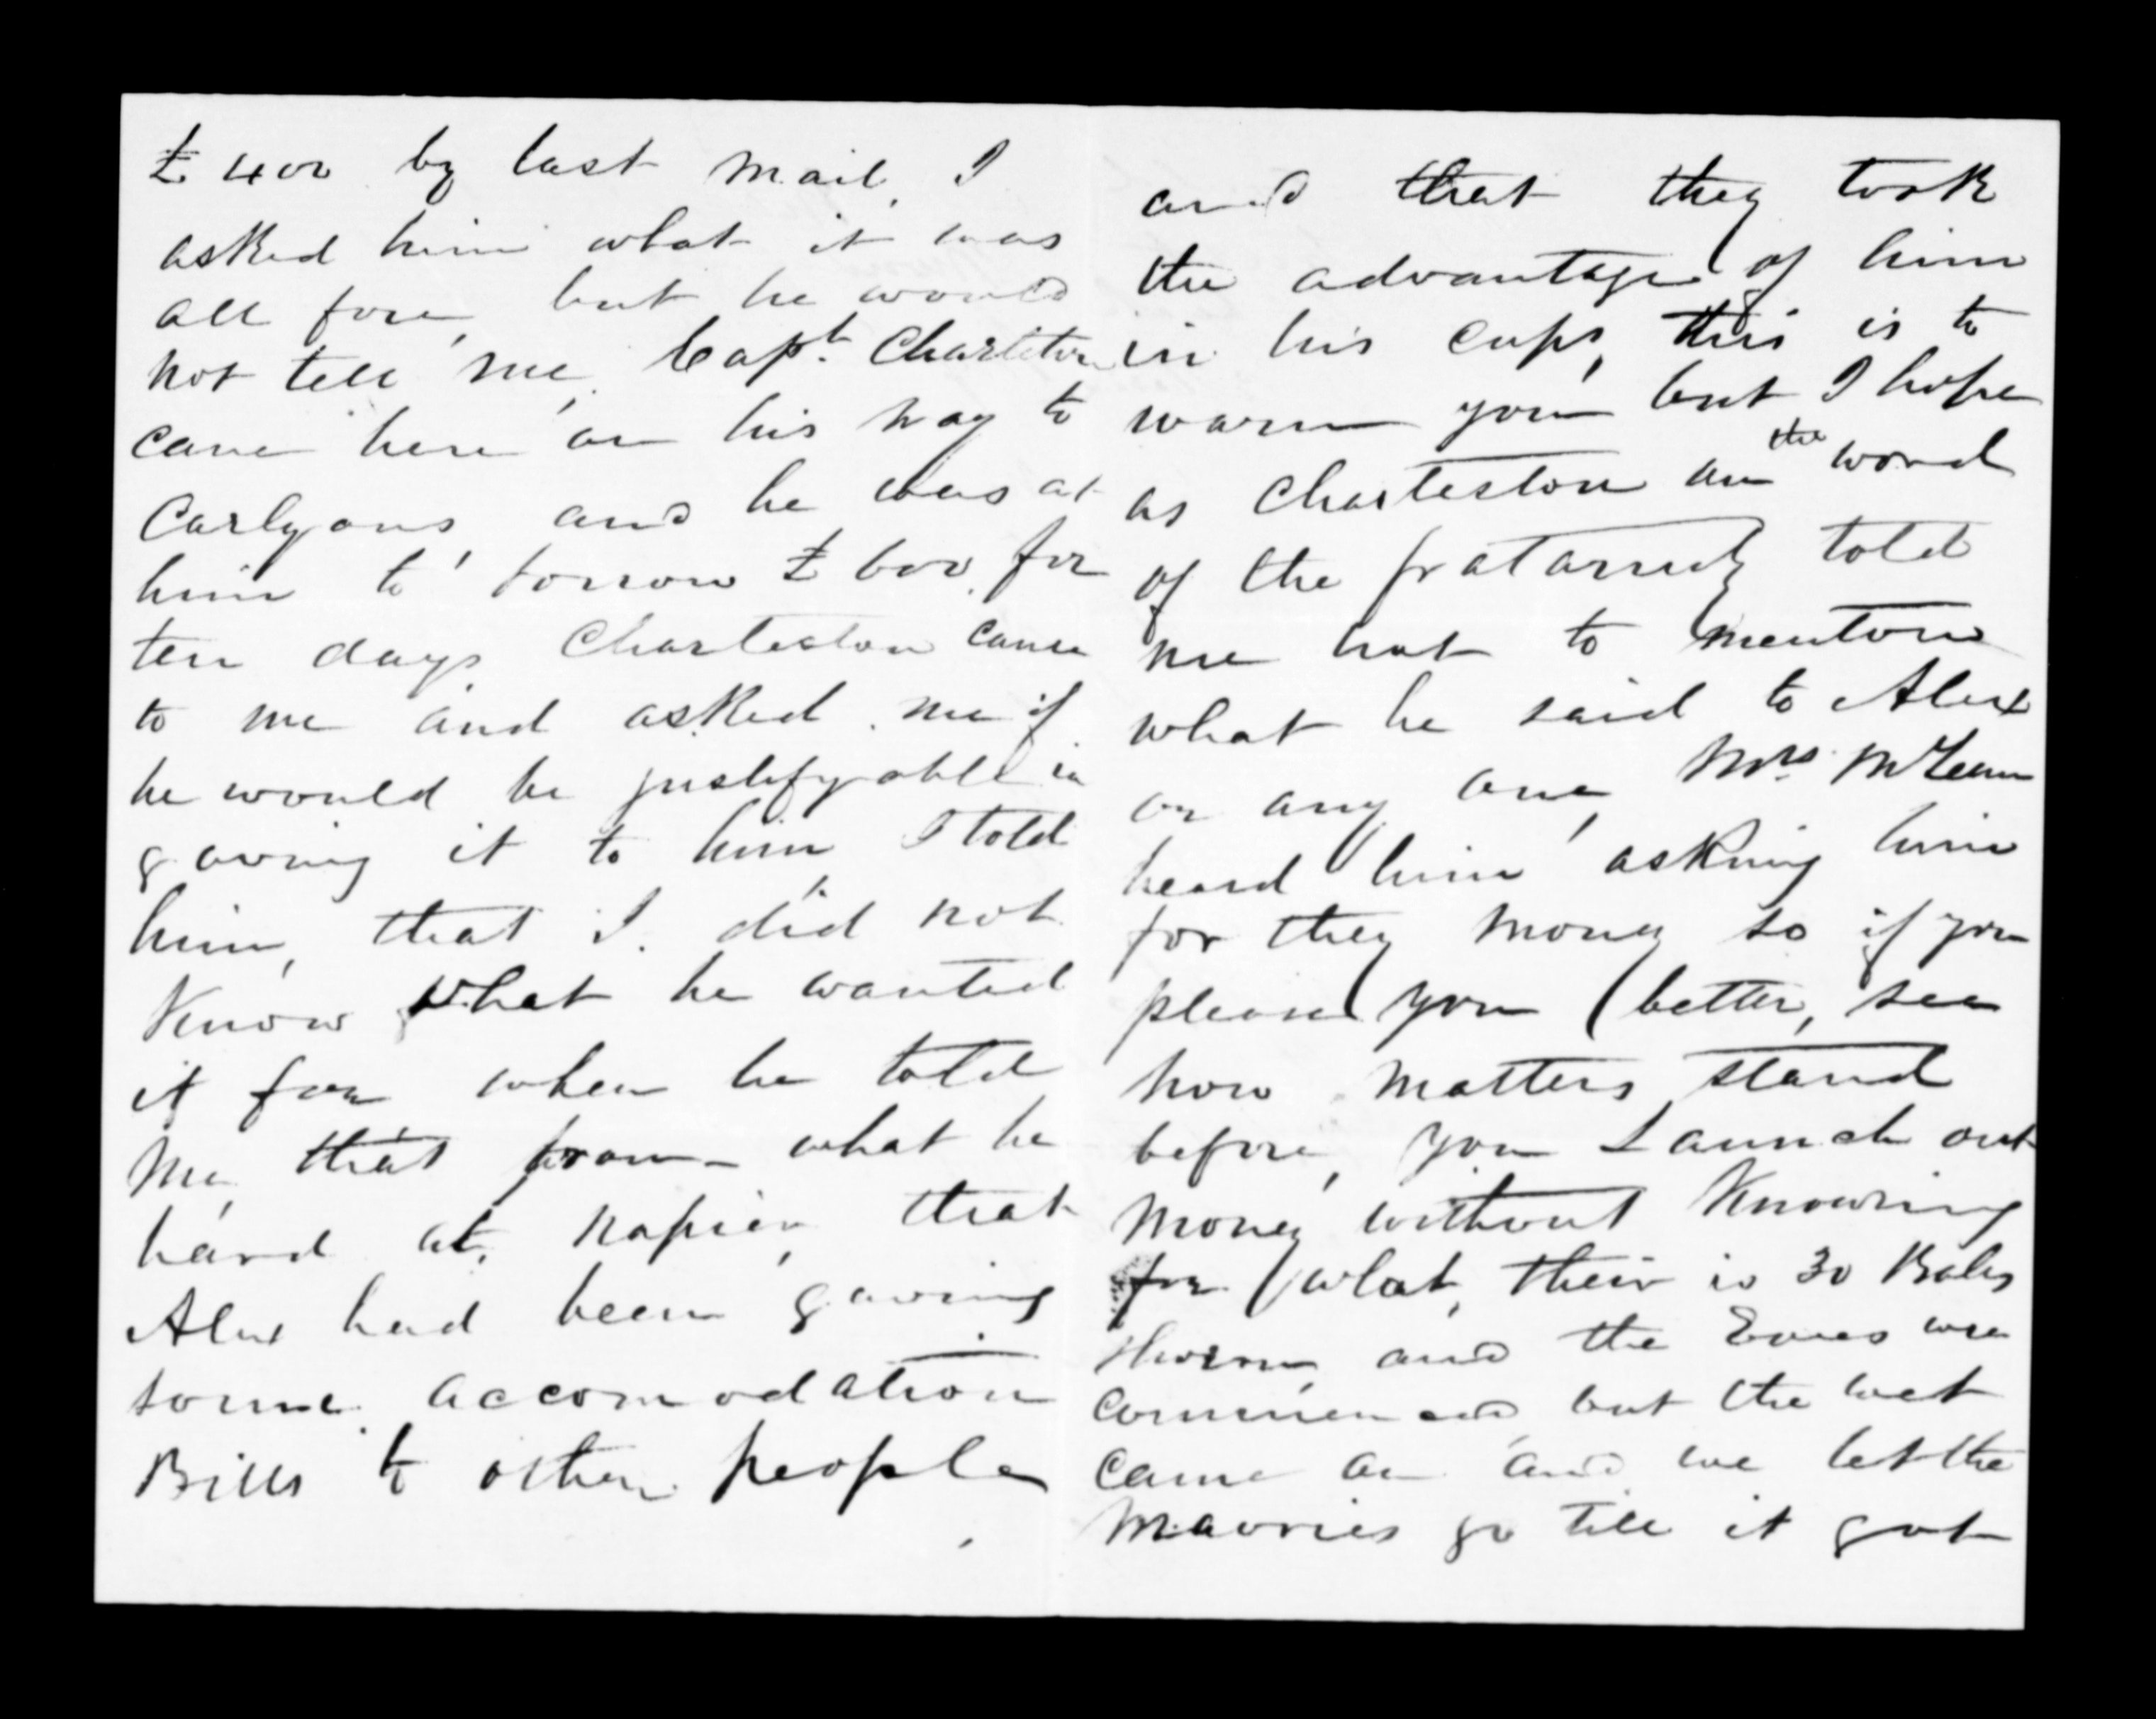 £400 by last mail, I
asked him what it was
all fore, but he would
not tell me, Capt. Charleton
came here on his way to
Carlyons, and he was at
him to borrow £600, for
ten days Charleston came
to me and asked me if
he would be justifyable in
gaving it to him, I told
him, that I did not
Know what he wanted
it for when he told
me, that from what he
hard at, napier, that
Alex had been gaving
some accomodation
Bills to other people
and that they took
the advantage of him
in his cups, this is to
warn you but I hope
as Charleston on the word
of the told
me not to mention
what he said to Alex
or any one, Mrs McLean
heard him asking him
for they money so if you
please you better, see
how matters stand
before, you Launch out
money without Knowing
for what, their is 30 Bales
Shorn, and the Ewes wer
commenced, but the wet
came on and we let the
Maories go till it got